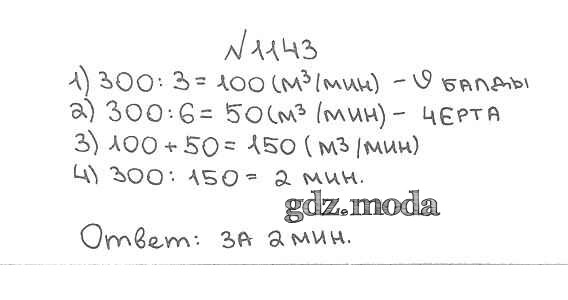 №1143
1) 300 : 3 = 100 (м³/мин) – υ БАЛДЫ
2) 300 : 6 = 50 (м³/мин) – ЧЕРТА
3) 100 + 50 = 150 (м3/мин)
4) 300 : 150 = 2 мин.
gdz.moda
Ответ: ЗА 2 мин.